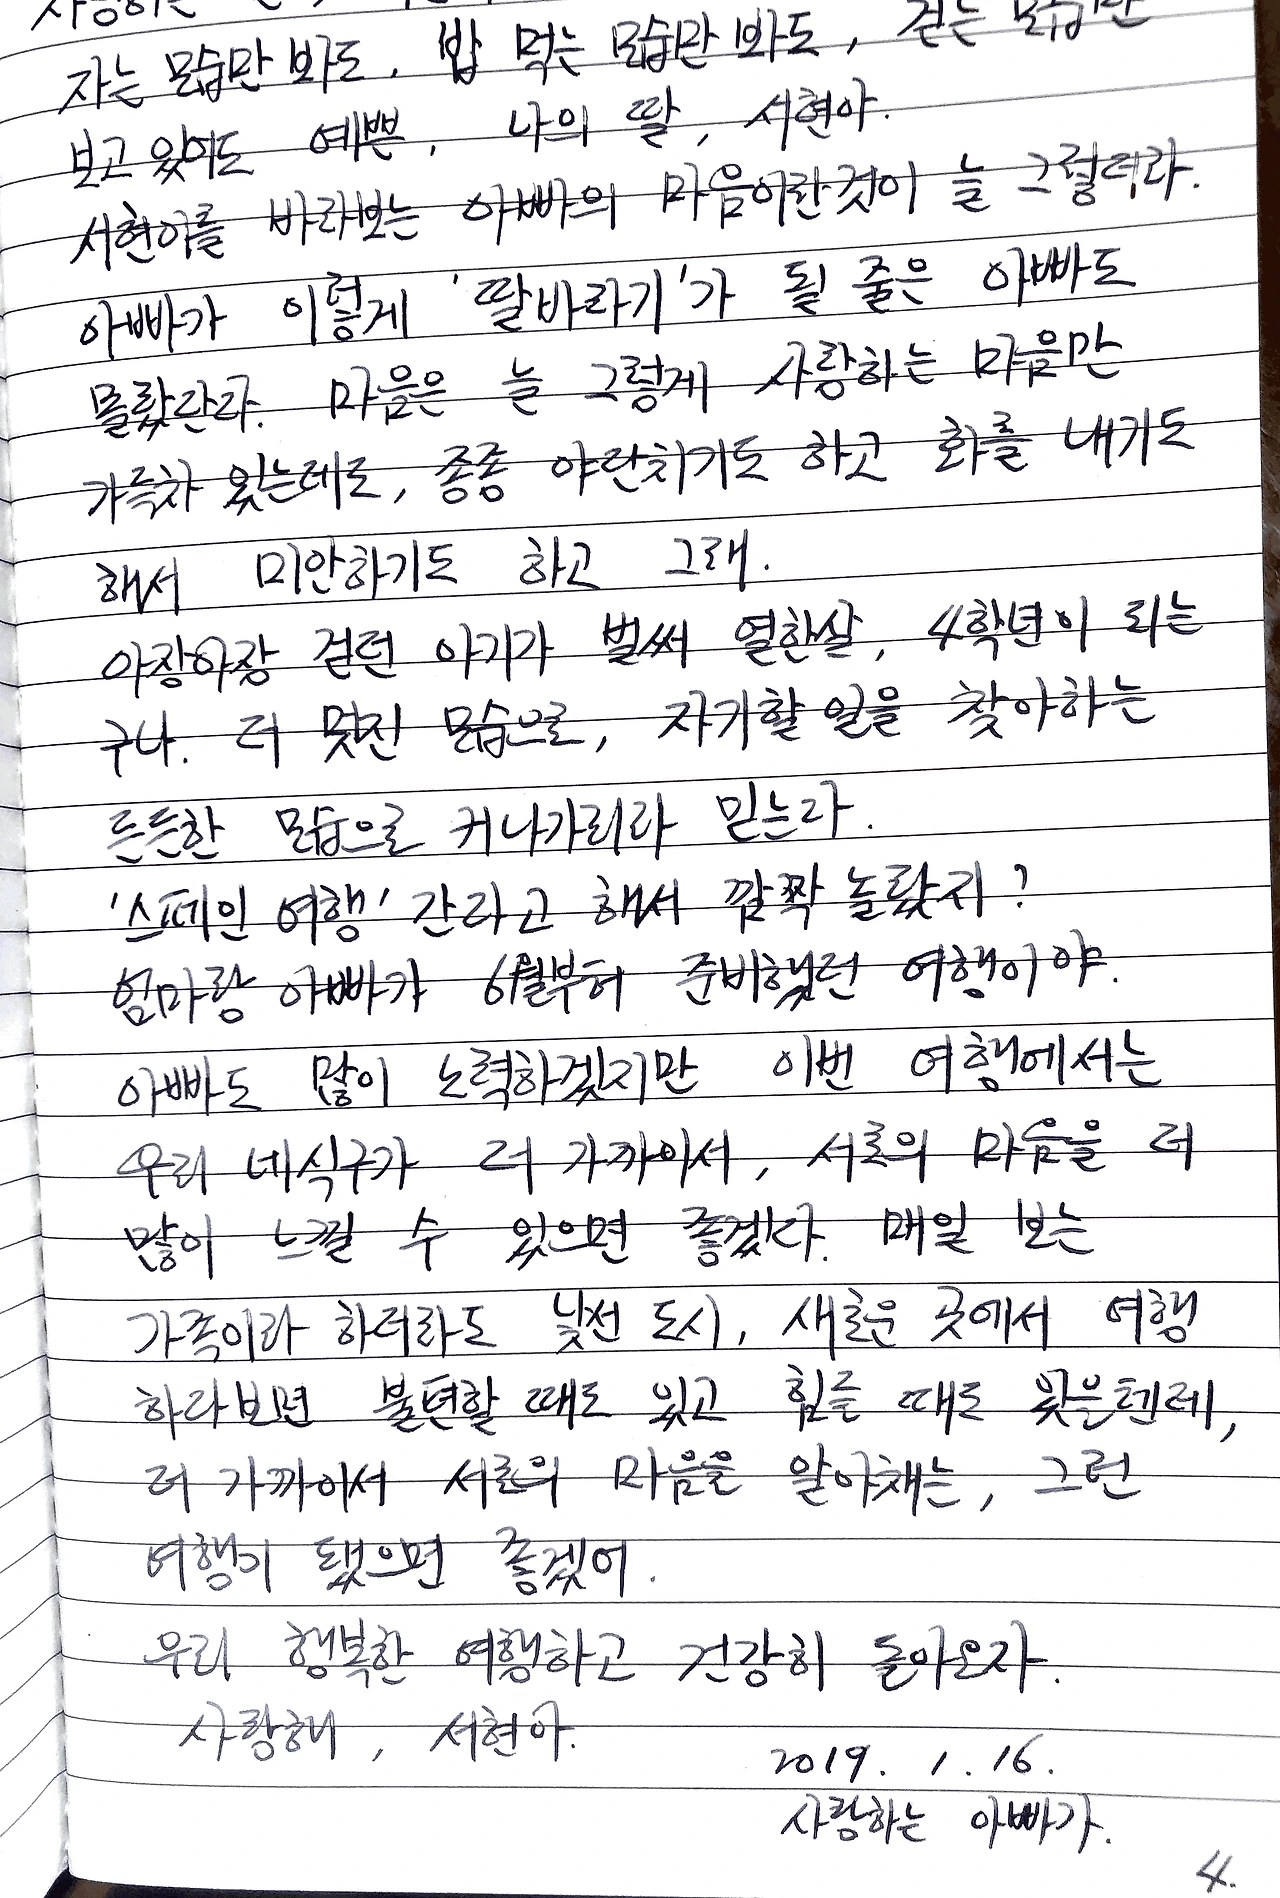 자는 모습만 봐도, 밥 먹는 모습만 봐도, 걷는 모습만
보고 있어도 예쁜, 나의 딸, 서현아.
서현이를 바라보는 아빠의 마음이란것이 늘 그렇더라.
아빠가 이렇게 '딸바라기'가 될 줄은 아빠도
몰랐단다. 마음은 늘 그렇게 사랑하는 마음만
가득차 있는데도, 종종 야단치기도 하고 화를 내기도
해서 미안하기도 하고 그래.
아장아장 걷던 아기가 벌써 열한살, 4학년이 되는
구나. 더 멋진 모습으로, 자기할 일을 찾아하는
든든한 모습으로 커나가리라 믿는다.
'스페인 여행' 간다고 해서 깜짝 놀랐지?
엄마랑 아빠가 6월부터 준비했던 여행이야.
아빠도 많이 노력하겠지만 이번 여행에서는
우리 네식구가 더 가까이서, 서로의 마음을 더
많이 느낄 수 있으면 좋겠다. 매일 보는
가족이라 하더라도 낯선 도시, 새로운 곳에서 여행
하다보면 불편할 때도 있고 힘들 때도 있을텐데,
더 가까이서 서로의 마음을 알아채는, 그런
여행이 됐으면 좋겠어.
우리 행복한 여행하고 건강히 돌아오자.
사랑해, 서현아.
2019. 1. 16.
사랑하는 아빠가.
4.